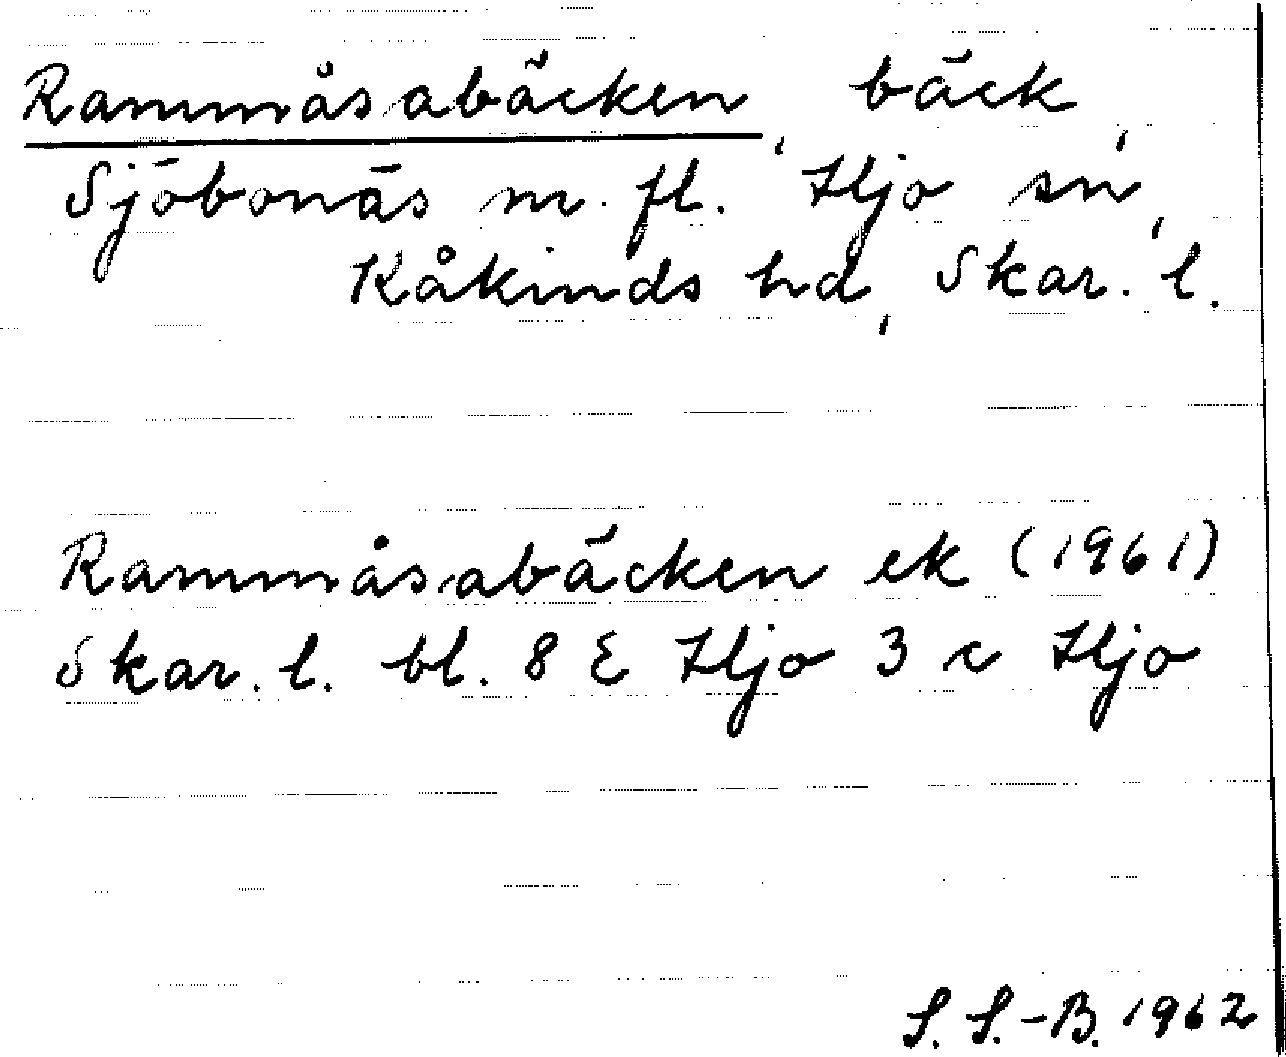 Rammåsabäcken, bäck,
Sjöbonäs m. fl. Hjo sn,
Kåkinds hd, Skar. l.
Rammåsabäcken ek (1961)
Skar. l. bl. 8 E Hjo 3 c Hjo
S. S.-B. 1962